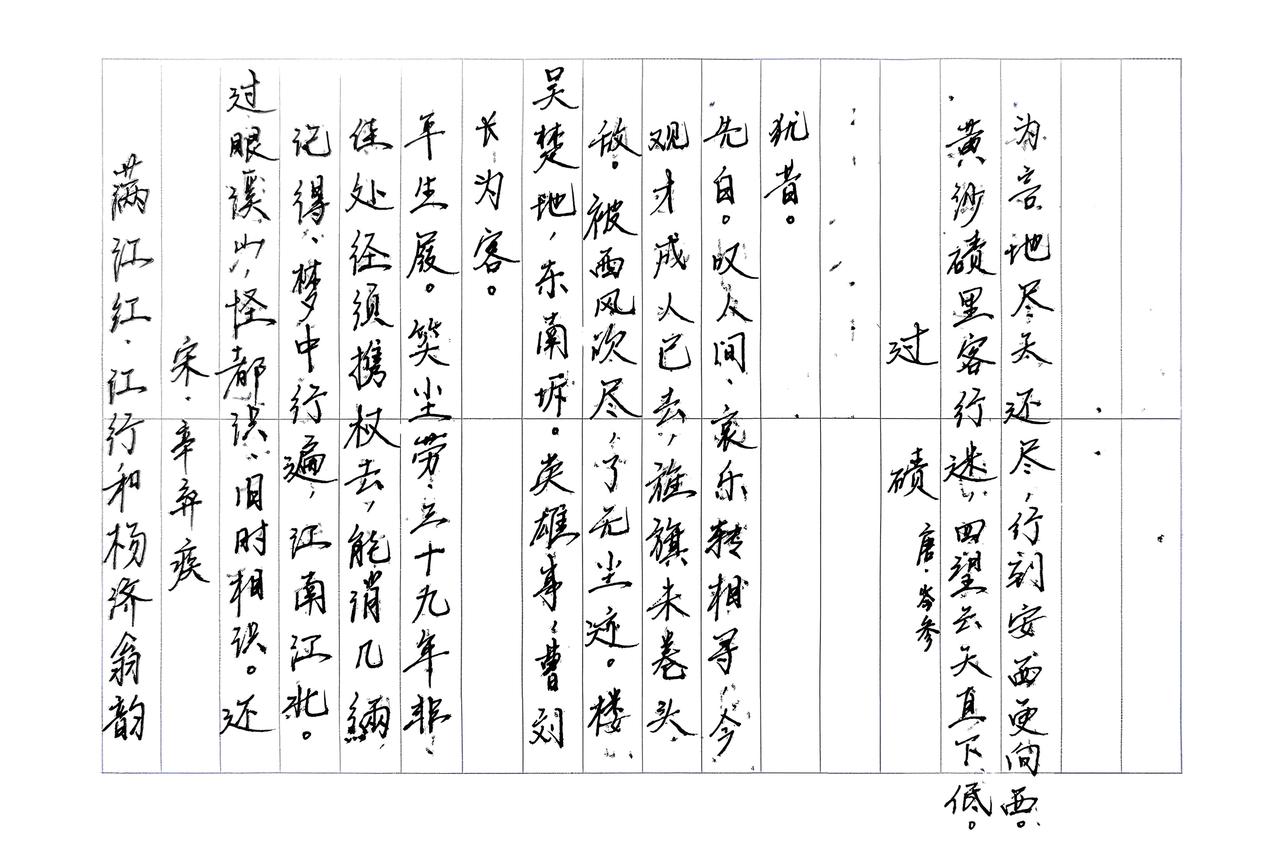 满江红·江行和杨济翁韵
宋·辛弃疾
过眼溪山，怪都误、旧时相识。还
记得、梦中行遍，江南江北。
佳处经须携杖去，能消几緉
平生屐。笑尘劳、三十九年非
长为客。
吴楚地，东南坼。英雄事，曹刘
敌。被西风吹尽，了无尘迹。楼
观才成人已去，旌旗未卷头
先白。叹人间、哀乐转相寻，今
犹昔。
过 碛 唐·岑参
黄纱碛里客行迷，四望云天直下低。
为言地尽天还尽，行到安西更向西。